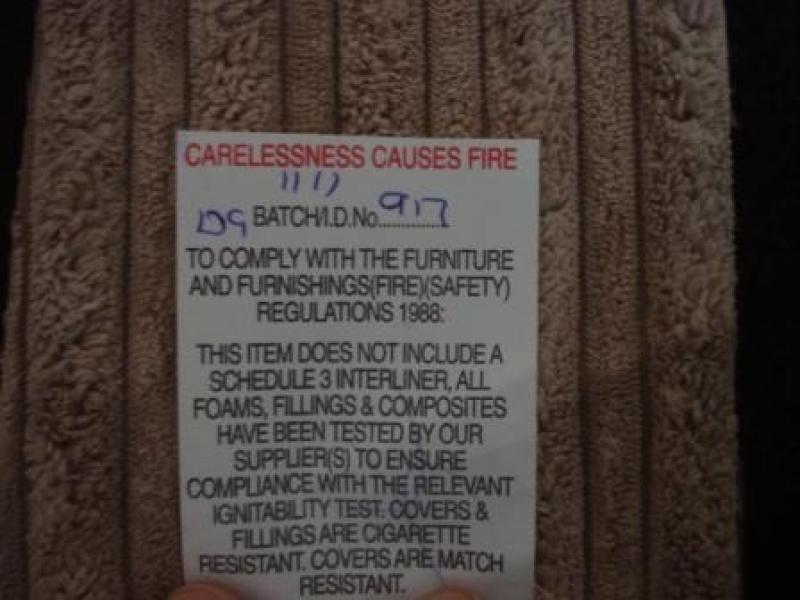 CARELESSNESS CAUSES FIRE
BATCH/I.D.No.............. 917
TO COMPLY WITH THE FURNITURE
AND FURNISHINGS(FIRE)(SAFETY)
REGULATIONS 1988:
THIS ITEM DOES NOT INCLUDE A
SCHEDULE 3 INTERLINER, ALL
FOAMS, FILLINGS & COMPOSITES
HAVE BEEN TESTED BY OUR
SUPPLIER(S) TO ENSURE
COMPLIANCE WITH THE RELEVANT
IGNITABILITY TEST. COVERS &
FILLINGS ARE CIGARETTE
RESISTANT. COVERS ARE MATCH
RESISTANT.